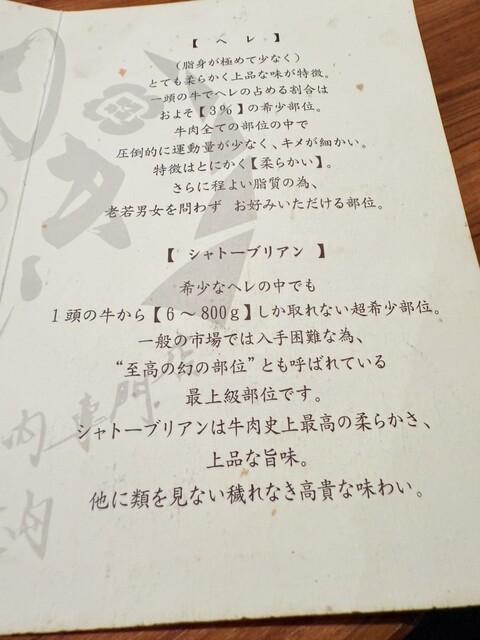 【 ヘレ 】
（脂身が極めて少なく）
とても柔らかく上品な味が特徴。
一頭の牛でヘレの占める割合は
およそ【３％】の希少部位。
牛肉全ての部位の中で
圧倒的に運動量が少なく、キメが細かい。
特徴はとにかく【柔らかい】。
さらに程よい脂質の為、
老若男女を問わず　お好みいただける部位。
【 シャトーブリアン 】
希少なヘレの中でも
１頭の牛から【６～８００ｇ】しか取れない超希少部位。
一般の市場では入手困難な為、
“至高の幻の部位”とも呼ばれている
最上級部位です。
シャトーブリアンは牛肉史上最高の柔らかさ、
上品な旨味。
他に類を見ない穢れなき高貴な味わい。
肉専門店